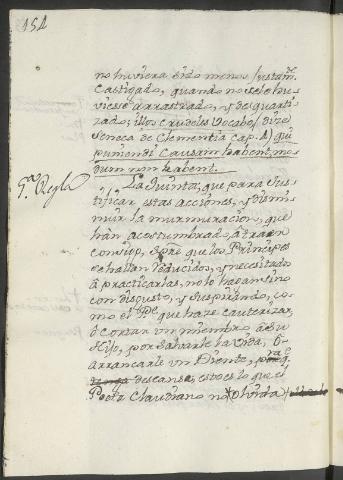 154
no huviera sido menos justam.te
castigado, quando no se le hu-
viesse arrastrado, y desquarti-
zado; illos crudeles vocabo (dize
Seneca de Clementia Cap. 4) qui
puniendi causam habent, mo-
dum non habent.
5.a Regla
La Quinta, que para jus-
tificar estas acciones, y dismi-
nuir la murmuracion, que
han acostumbrado, à traer
consigo, spre que los Principes
se hallan reducidos, y necesitados
à practicarlas, no lo hagan sino
con disgusto, y suspirando, co-
mo el P.e que haze cauterizar,
ò cortar un miembro à su
Hijo, por salvarle la vida, ò
arrancarle un Diente, para q
descanse, esto es lo que el
Poeta Claudiano no olvida